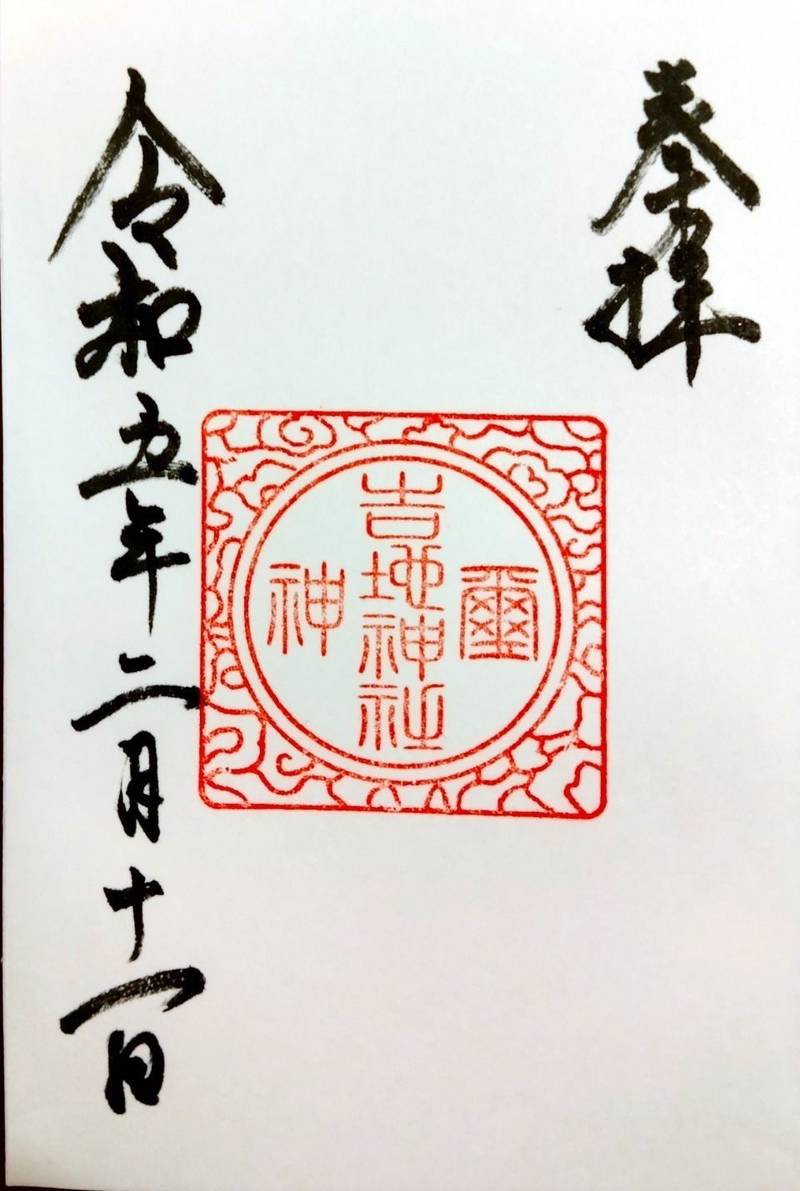 奉拝
爾
吉地神社
神
令和五年二月十一日